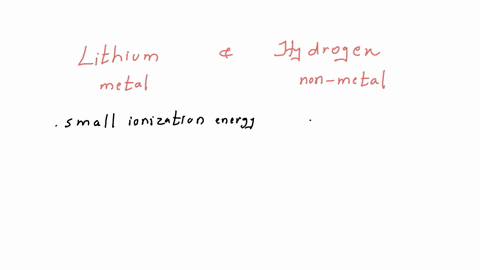 Lithium & Hydrogen
metal non-metal
. small ionization energy .